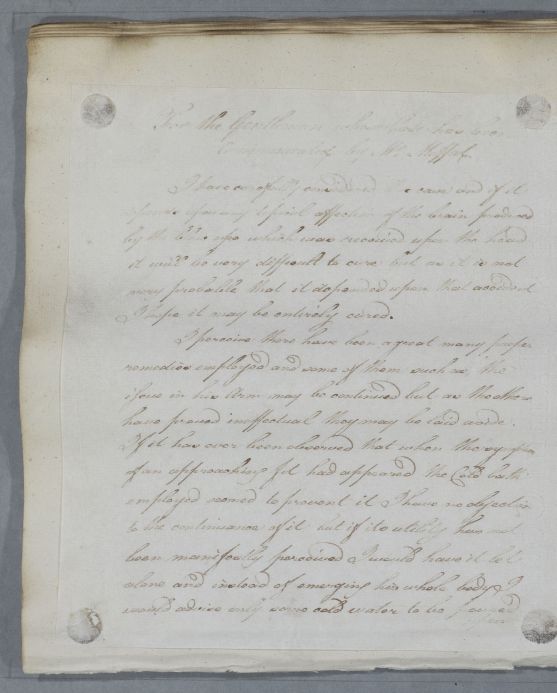 For the Gentleman whose Case has been
Communicated by Mr. Moffat.
I have carefully considered the case and if it
depends upon any topical affection of the brain produced
by the blow which was received upon the head
it will be very difficult to cure but as it is not
very probable that it depended upon that accident
I hope it may be entirely cured.
I perceive there have been a great many proper
remedies employed and some of them such as the
issue in his Arm may be continued but as the others
have proved ineffectual they may be laid aside.
If it has ever been observed that when the symptoms
of an approaching fit had appeared the Cold bath
employed seemed to prevent it I have no objection
to the continuance of it but if its utility has not
been manifestly perceived I would have it let
alone and instead of emerging his whole body I
would advise only some cold water to be poured